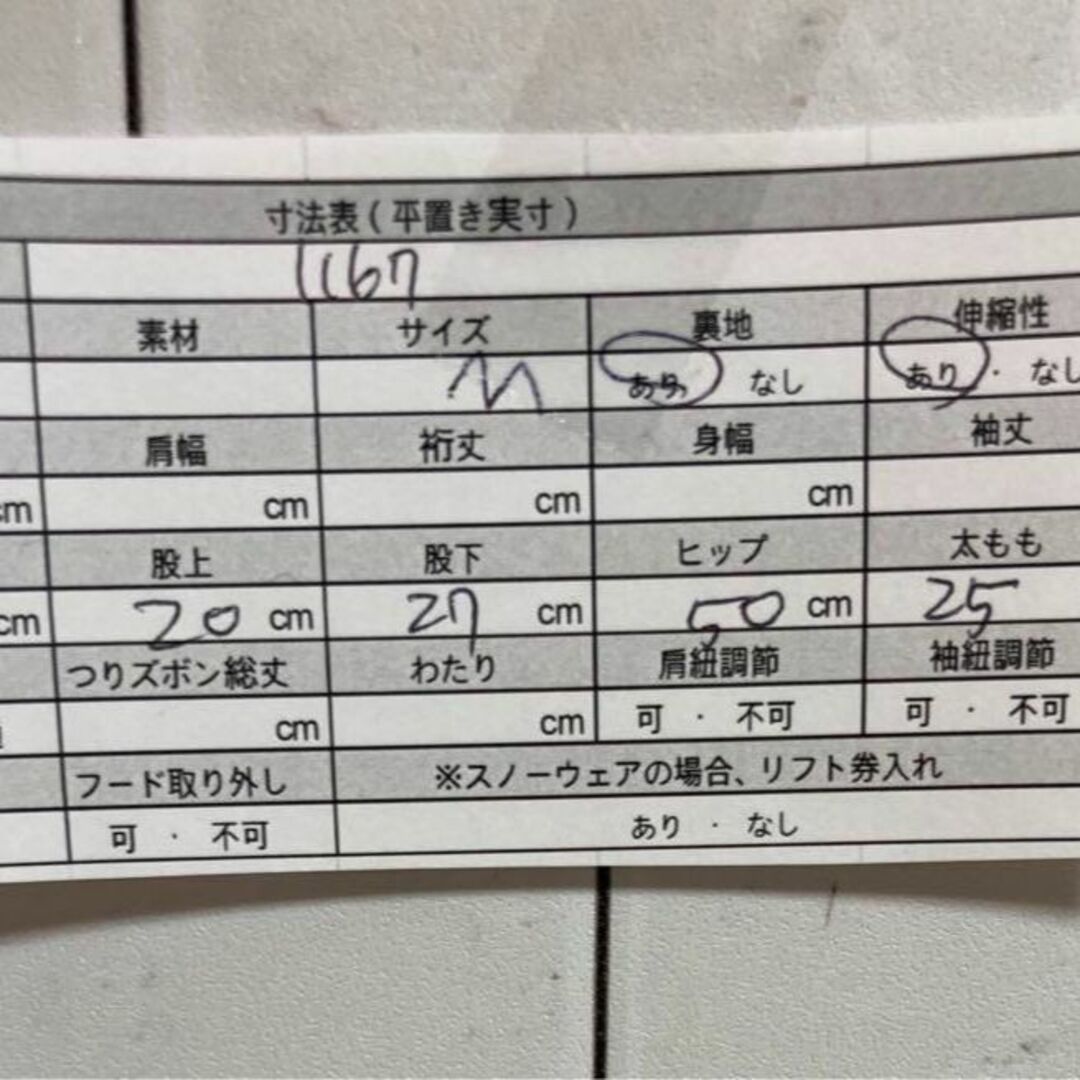 寸法表（平置き実寸）
1167
素材 サイズ 裏地 伸縮性
M あり なし あり・なし
肩幅 裄丈 身幅 袖丈
cm cm cm cm
股上 股下 ヒップ 太もも
cm 20 cm 27 cm 50 cm 25
つりズボン総丈 わたり 肩紐調節 袖紐調節
cm cm 可・不可 可・不可
フード取り外し ※スノーウェアの場合、リフト券入れ
可・不可 あり・なし